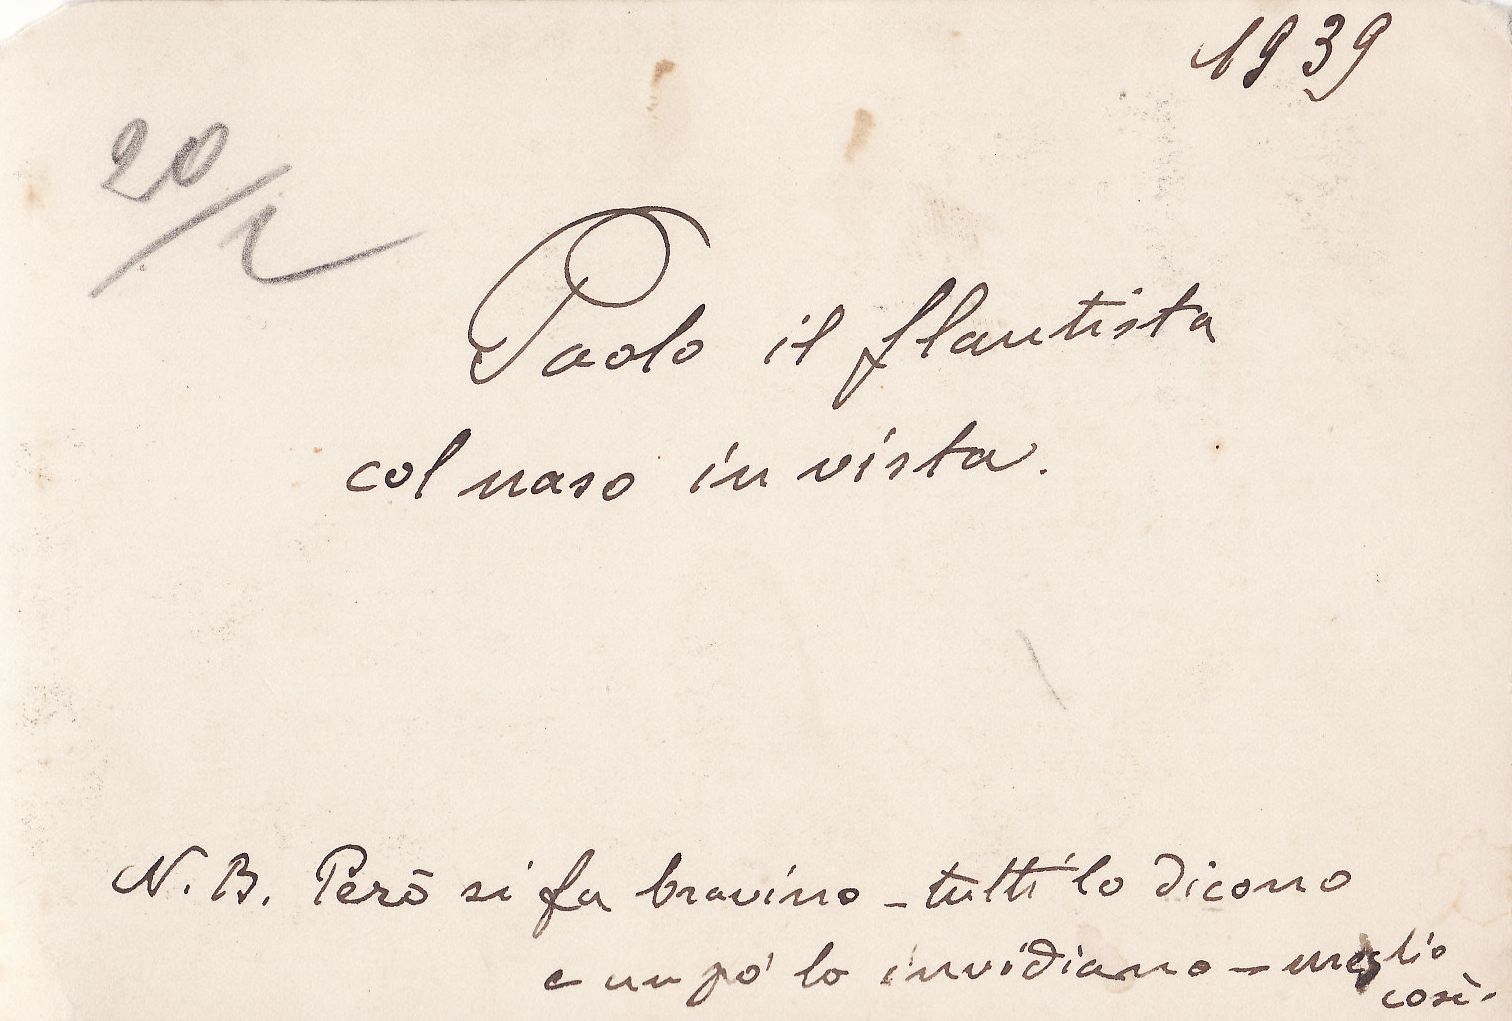 1939
20/2
Paolo il flautista
col naso in vista.
N.B. Però si fa bravino - tutti lo dicono
e un pò lo invidiano - meglio
così.